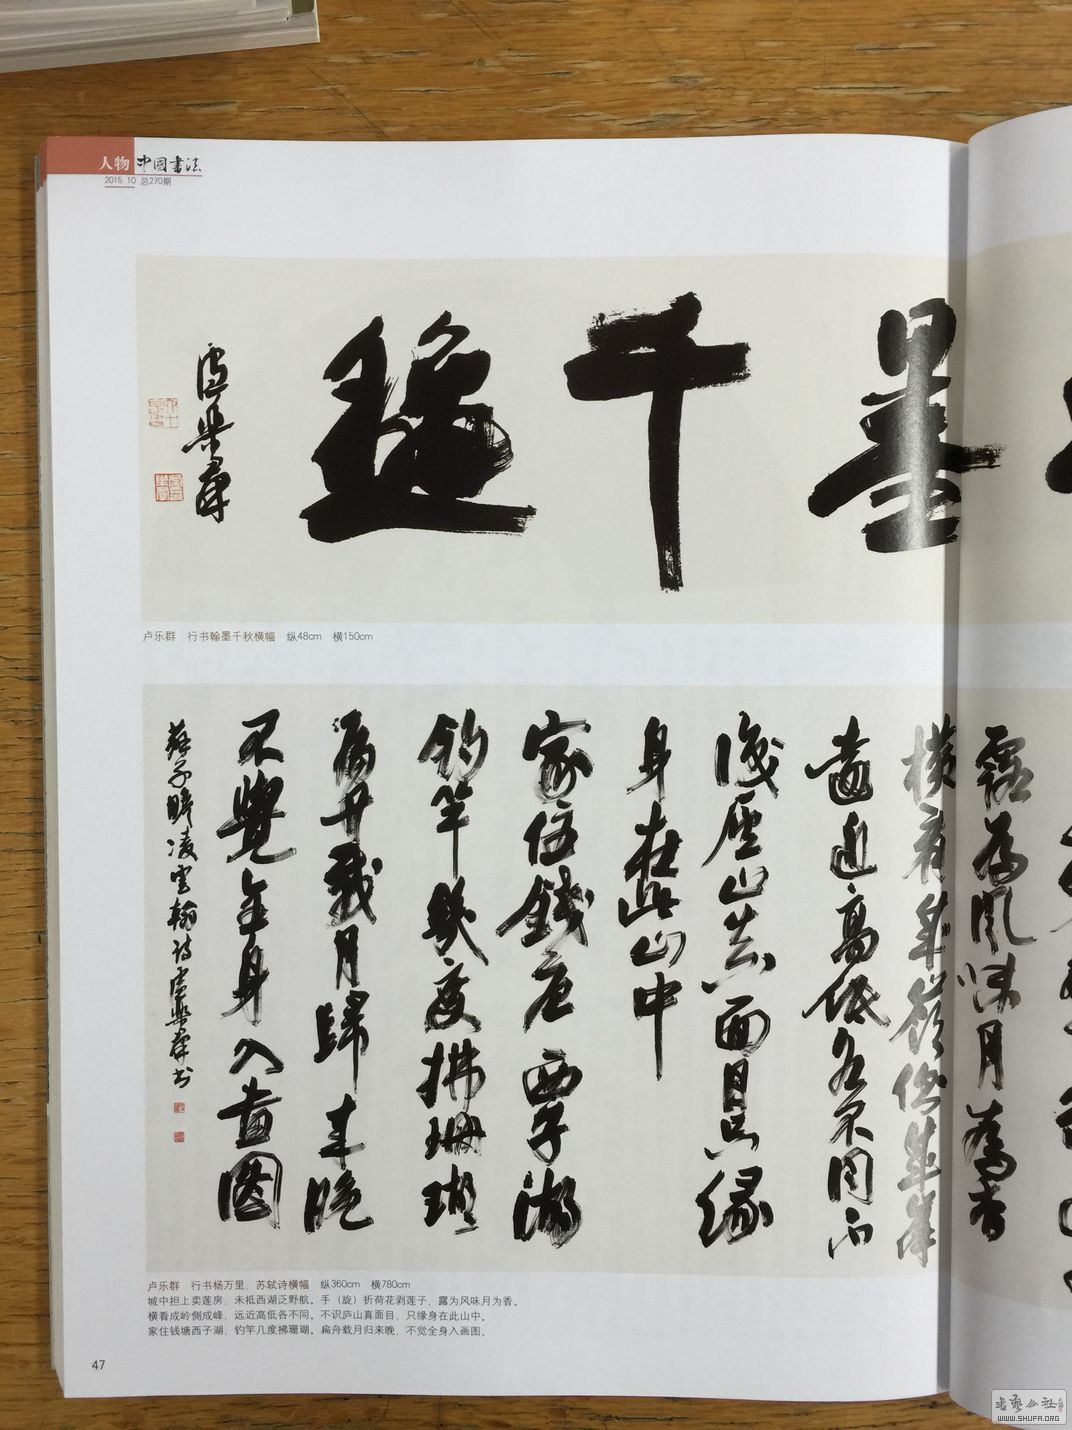 人物 中国书法
2015.10 总270期
墨千
盧樂群
卢乐群 行书翰墨千秋横幅 纵48cm 横150cm
露為風味月為香
横看成嶺側成峰
遠近高低各不同不
識廬山真面目只緣
身在此山中
家住錢唐西子湖
釣竿幾度拂珊瑚
扁舟載月歸来晚
不覺全身入畫圖
蘇子瞻凌雲翰诗盧樂群书
卢乐群 行书杨万里、苏轼诗横幅 纵360cm 横780cm
城中担上卖莲房，未抵西湖泛野航。手（旋）折荷花剥莲子，露为风味月为香。
横看成岭侧成峰，远近高低各不同。不识庐山真面目，只缘身在此山中。
家住钱塘西子湖，钓竿几度拂珊瑚。扁舟载月归来晚，不觉全身入画图。
47
书艺公社
WWW.SHUFA.ORG